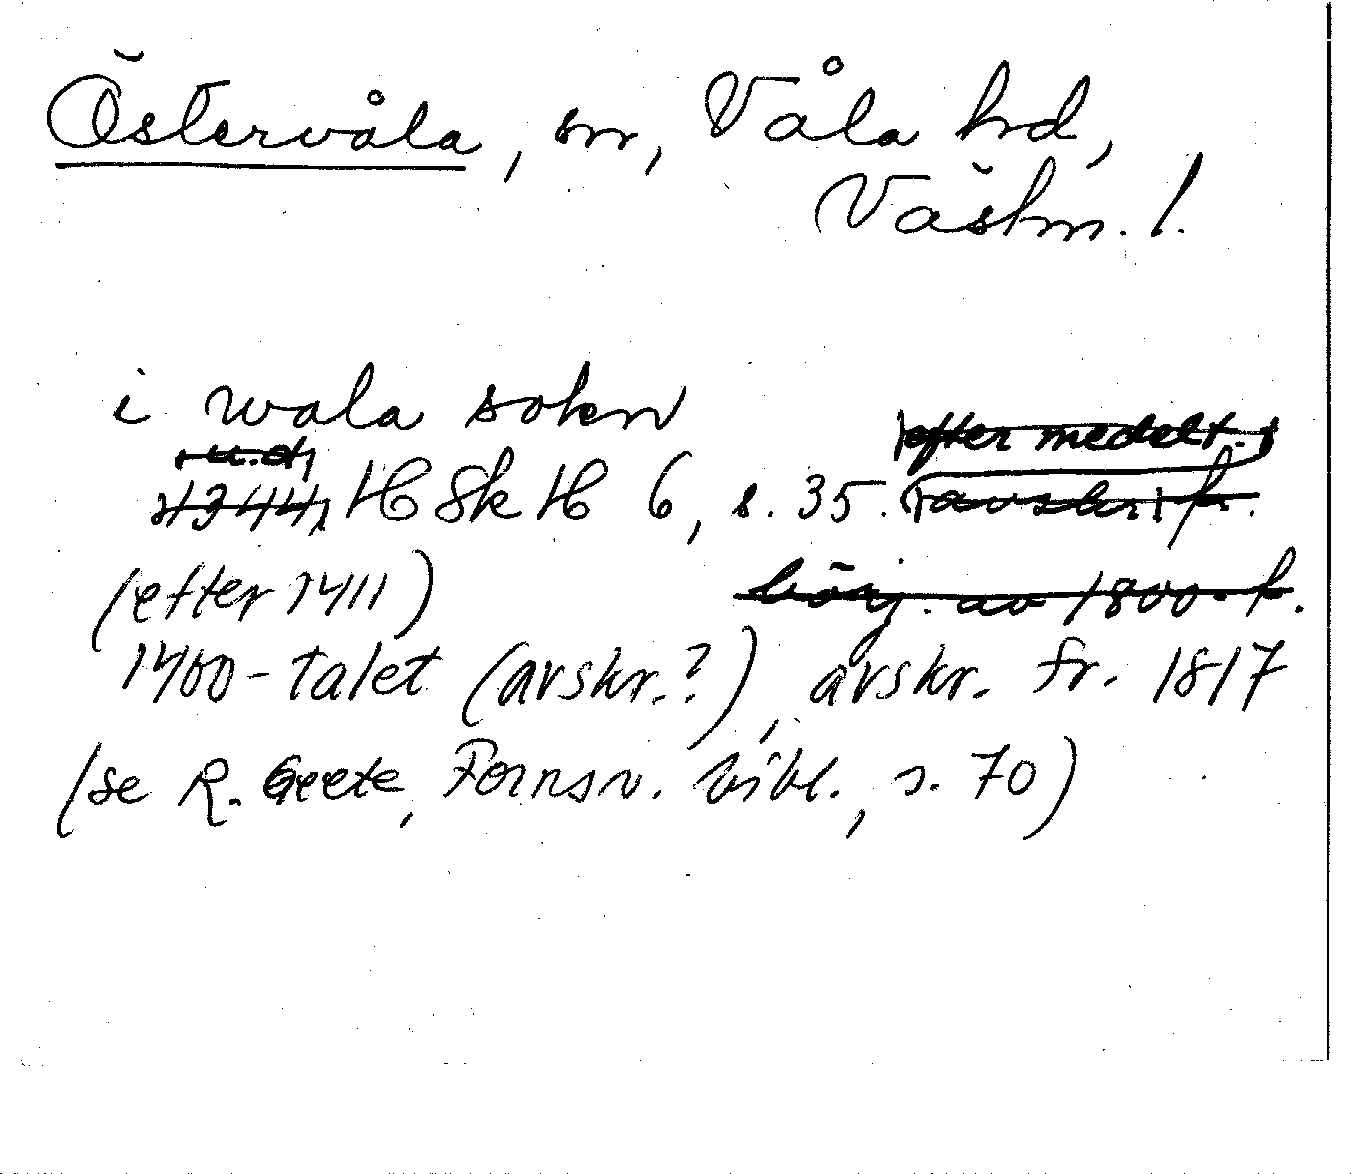 Östervåla, sn, Våla hd,
Västm. l.
i wala sokn
u.d. efter medelt.
1344, HSkH 6, s. 35. avskrift fr.
(efter 1411) börj. av 1800-t.
1400-talet (avskr.?), avskr. fr. 1817
(se R. Geete, Fornsv. bibl., s. 70)